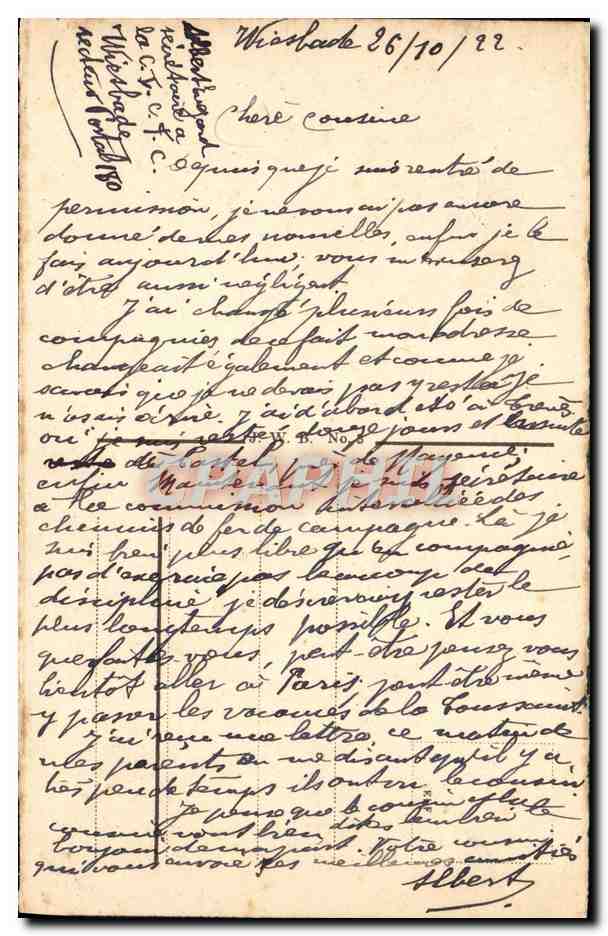 Wiesbade 26/10/22.
Albert
secrétaire a
la C.I.C.F.C.
Wiesbade
secteur Postal 180
Chere Cousine
Depuis que je suis rentré de
permission, je ne vous ai pas encore
donné de mes nouvelles, enfin je le
fais aujourd'hui. vous
d'être aussi négligent
J'ai changé plusieurs fois de
compagnies de ce fait mon adresse
changeait également et comme je
savais que je ne devais pas y rester je
n'osais écrire. J'ai d'abord été à Trèves
où je suis resté douze jours et ensuite
W. B. No. 3
à Castel près de Mayence,
enfin maintenant je suis secrétaire
à la commission interalliée des
chemins de fer de campagne. Là je
suis bien plus libre qu'en compagnie,
pas d'exercice pas beaucoup de
discipline, je désirerais y rester le
plus longtemps possible. Et vous
que faites vous, peut-être pensez vous
bientôt aller à Paris, peut être même
y passer les vacances de la Toussaint
J'ai reçu une lettre ce matin de
mes parents en me disant qu'il y a
très peu de temps ils ont eu le cousin
Je pense que le cousin et la
cousine vont bien, dites leur bien le
bonjour de ma part. Votre cousin
qui vous envoie ses meilleures amitiés
Albert
CPAPHIL